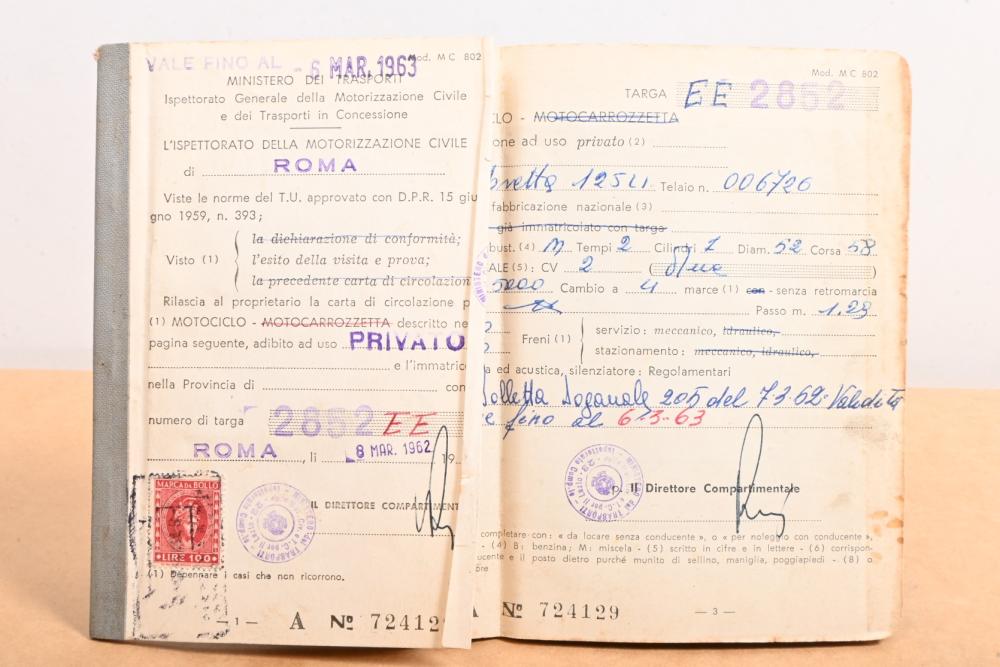 VALE FINO AL - 6 MAR. 1963
Mod. MC 802
MINISTERO DEI TRASPORTI
Ispettorato Generale della Motorizzazione Civile
e dei Trasporti in Concessione
L'ISPETTORATO DELLA MOTORIZZAZIONE CIVILE
di ROMA
Viste le norme del T.U. approvato con D.P.R. 15 giu
gno 1959, n. 393;
Visto (1)
la dichiarazione di conformità;
l'esito della visita e prova;
la precedente carta di circolazion
Rilascia al proprietario la carta di circolazione p
(1) MOTOCICLO - MOTOCARROZZETTA descritto ne
pagina seguente, adibito ad uso PRIVATO
e l'immatric
nella Provincia di con
numero di targa 2852 EE
ROMA, li 8 MAR. 1962 19
IL DIRETTORE COMPARTIMENT
MARCA DA BOLLO
LIRE 100
(1) Depennare i casi che non ricorrono.
— 1 — A Nº 72412
Mod. MC 802
TARGA EE 2852
CLO - MOTOCARROZZETTA
one ad uso privato (2)
bretta 125 LI Telaio n. 006726
fabbricazione nazionale (3)
già immatricolato con targa
bust. (4) M Tempi 2 Cilindri 1 Diam. 52 Corsa 58
ALE (5): CV 2 (due)
5200 Cambio a 4 marce (1) con - senza retromarcia
Passo m. 1.29
Freni (1)
servizio: meccanico, idraulico,
stazionamento: meccanico, idraulico,
a ed acustica, silenziatore: Regolamentari
olletta Doganale 205 del 7.3.62. Validità
e fino al 6-3-63
p. Il Direttore Compartimentale
completare con: « da locare senza conducente », o « per noleggio con conducente »,
- (4) B: benzina; M: miscela - (5) scritto in cifre e in lettere - (6) corrispon-
ucente e il posto dietro purché munito di sellino, maniglia, poggiapiedi - (8) o
ore
A Nº 724129 — 3 —